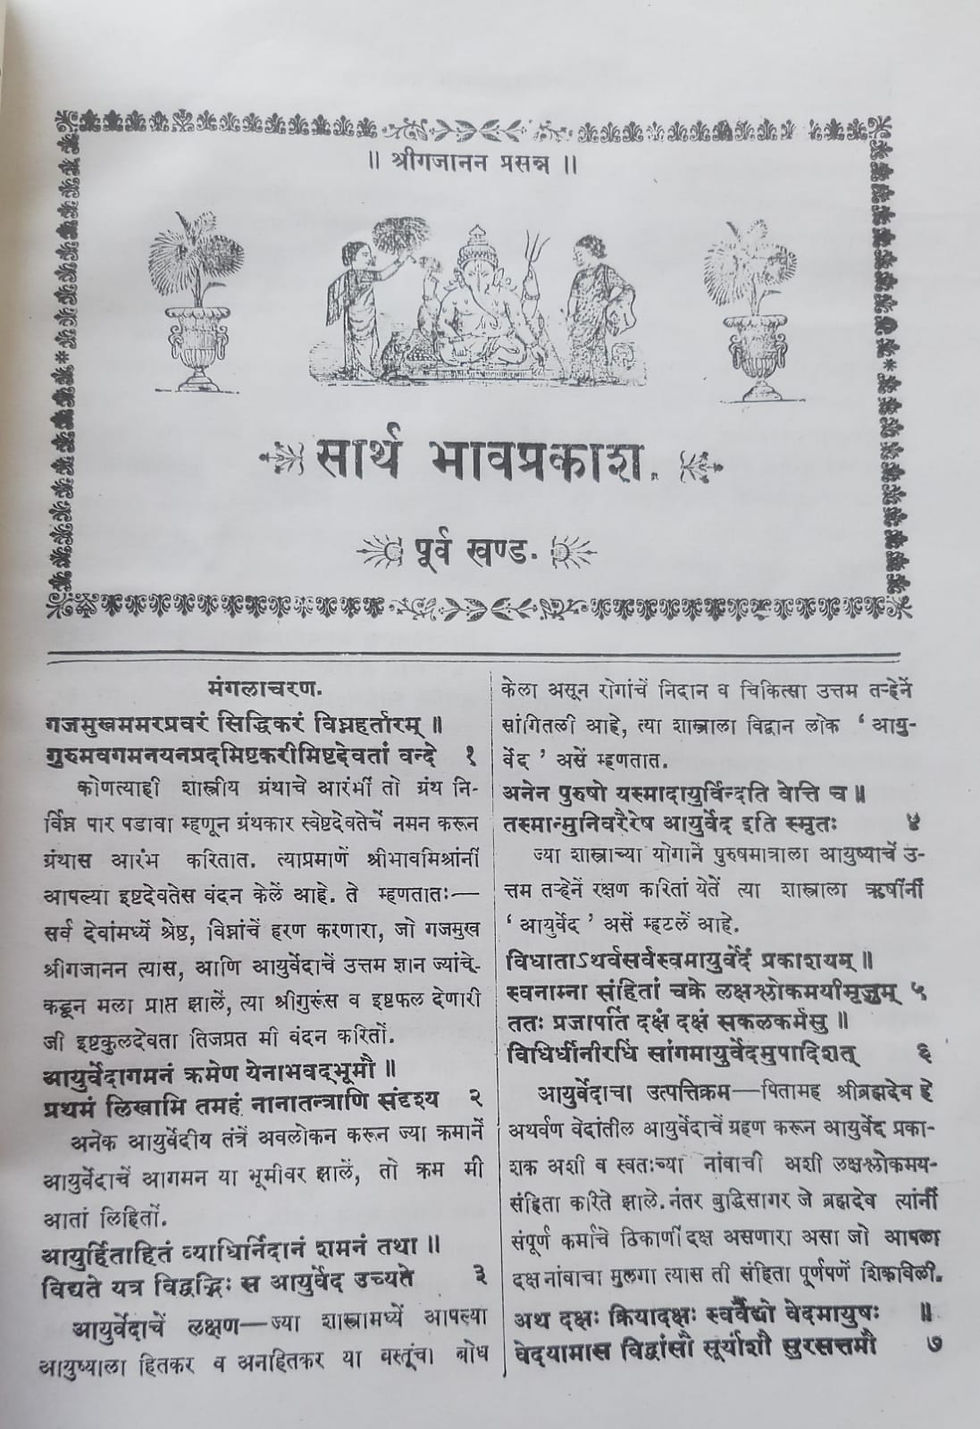 ॥ श्रीगजानन प्रसन्न ॥
सार्थ भावप्रकाश.
पूर्व खण्ड.
मंगलाचरण.
गजमुखममरप्रवरं सिद्धिकरं विघ्नहर्तारम् ॥
गुरुमवगमनयनप्रदमिष्टकरीमिष्टदेवतां वन्दे १
कोणत्याही शास्त्रीय ग्रंथाचे आरंभीं तो ग्रंथ नि-
र्विघ्न पार पडावा म्हणून ग्रंथकार स्वेष्टदेवतेचें नमन करून
ग्रंथास आरंभ करितात. त्याप्रमाणें श्रीभावमिश्रांनीं
आपल्या इष्टदेवतेस वंदन केलें आहे. ते म्हणतातः—
सर्व देवांमध्यें श्रेष्ठ, विघ्नांचें हरण करणारा, जो गजमुख
श्रीगजानन त्यास, आणि आयुर्वेदाचें उत्तम ज्ञान ज्यांचे-
कडून मला प्राप्त झालें, त्या श्रीगुरूंस व इष्टफल देणारी
जी इष्टकुलदेवता तिजप्रत मी वंदन करितों.
आयुर्वेदागमनं क्रमेण येनाभवद्भूमौ ॥
प्रथमं लिखामि तमहं नानातन्त्राणि संदृश्य २
अनेक आयुर्वेदीय तंत्रें अवलोकन करून ज्या क्रमानें
आयुर्वेदाचें आगमन या भूमीवर झालें, तो क्रम मी
आतां लिहितों.
आयुर्हिताहितं व्याधिर्निदानं शमनं तथा ॥
विद्यते यत्र विद्वद्भिः स आयुर्वेद उच्यते ३
आयुर्वेदाचें लक्षण—ज्या शास्त्रामध्यें आपल्या
आयुष्याला हितकर व अनाहितकर या वस्तूंचा बोध
केला असून रोगांचें निदान व चिकित्सा उत्तम तऱ्हेनें
सांगितली आहे, त्या शास्त्राला विद्वान लोक ‘ आयु-
र्वेद ’ असें म्हणतात.
अनेन पुरुषो यस्मादायुर्विन्दति वेत्ति च ॥
तस्मान्मुनिवरैरेष आयुर्वेद इति स्मृतः ४
ज्या शास्त्राच्या योगानें पुरुषमात्राला आयुष्याचें उ-
त्तम तऱ्हेनें रक्षण करितां येतें त्या शास्त्राला ऋषींनीं
‘ आयुर्वेद ’ असें म्हटलें आहे.
विधाताऽथर्वसर्वस्वमायुर्वेदं प्रकाशयम् ॥
स्वनाम्ना संहितां चक्रे लक्षश्लोकमयीमृजुम् ५
ततः प्रजापतिं दक्षं दक्षं सकलकर्मसु ॥
विधिर्धीनीरधिं सांगमायुर्वेदमुपादिशत् ६
आयुर्वेदाचा उत्पत्तिक्रम—पितामह श्रीब्रह्मदेव हे
अथर्वण वेदांतील आयुर्वेदाचें ग्रहण करून आयुर्वेद प्रका-
शक अशी व स्वतःच्या नांवाची अशी लक्षश्लोकमय-
संहिता करिते झाले. नंतर बुद्धिसागर जे ब्रह्मदेव त्यांनीं
संपूर्ण कर्माचे ठिकाणीं दक्ष असणारा असा जो आपला
दक्ष नांवाचा मुलगा त्यास ती संहिता पूर्णपणें शिकविली.
अथ दक्षः क्रियादक्षः स्वर्वैद्यो वेदमायुषः ॥
वेदयामास विद्वांसौ सूर्यांशौ सुरसत्तमौ ७